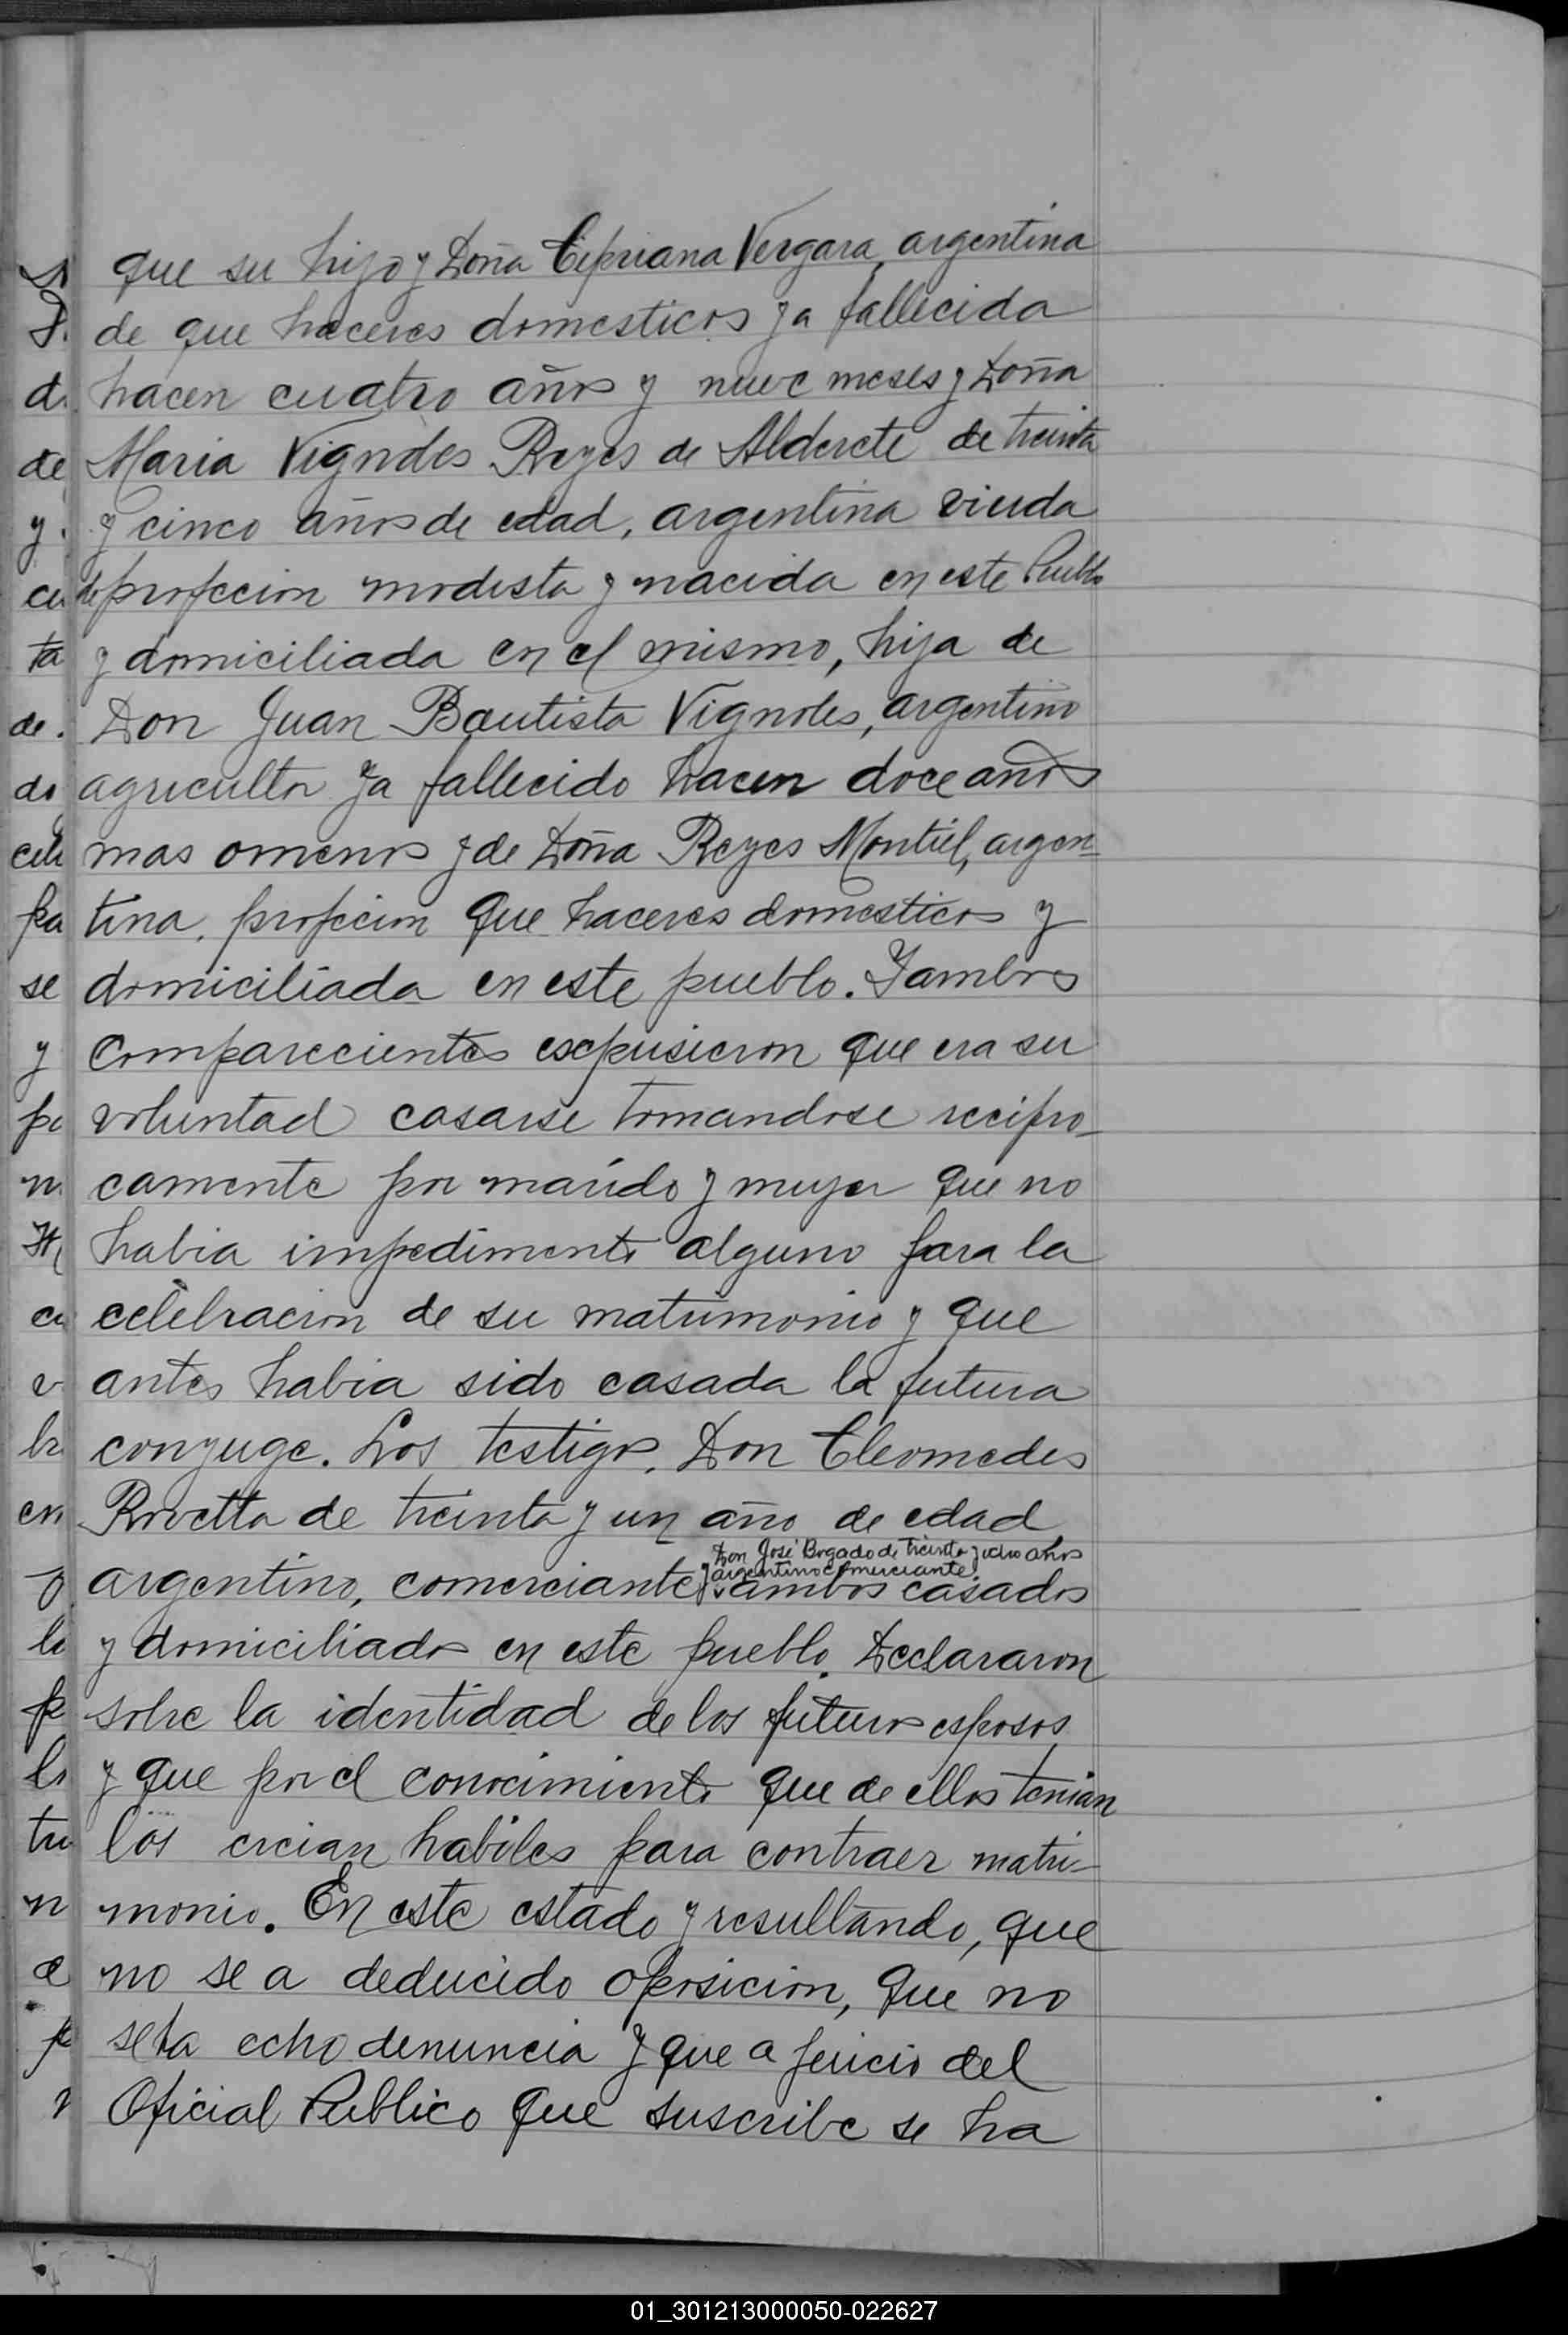 que su hijo y Doña Cipriana Vergara, argentina
de que haceres domesticos ya fallecida
hacen cuatro años y nueve meses y Doña
Maria Vignoles Reyes de Alderete de treinta
y cinco años de edad, argentina viuda
de profecion modista y nacida en este Pueblo
y domiciliada en el mismo, hija de
Don Juan Bautista Vignoles, argentino
agricultor ya fallecido hacen doce años
mas omenos y de Doña Reyes Montiel, argen-
tina, profecion que haceres domesticos y
domiciliada en este pueblo. Yambos
comparecientes escpusieron que era su
voluntad casarse tomandose recipro-
camente por marido y muger que no
habia impedimento alguno para la
celebracion de su matrimonio y que
antes habia sido casada la futura
conyuge. Los testigos, Don Cleomedes
Rovetta de treinta y un año de edad,
Don José Bogado de treinta y ocho años
argentino comerciante
argentino, comerciante y ambos casados
y domiciliados en este pueblo. Declararon
sobre la identidad de los futuros esposos
y que por el conocimiento que de ellos tenian
los creian habiles para contraer matri-
monio. En este estado y resultando, que
no se a deducido oposicion, que no
se ha echo denuncia y que a juicio del
Oficial Publico que suscribe se ha
01_301213000050-022627